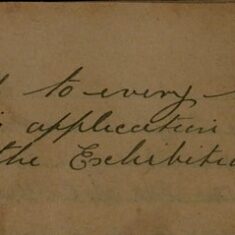 to every
application
the Exhibitio